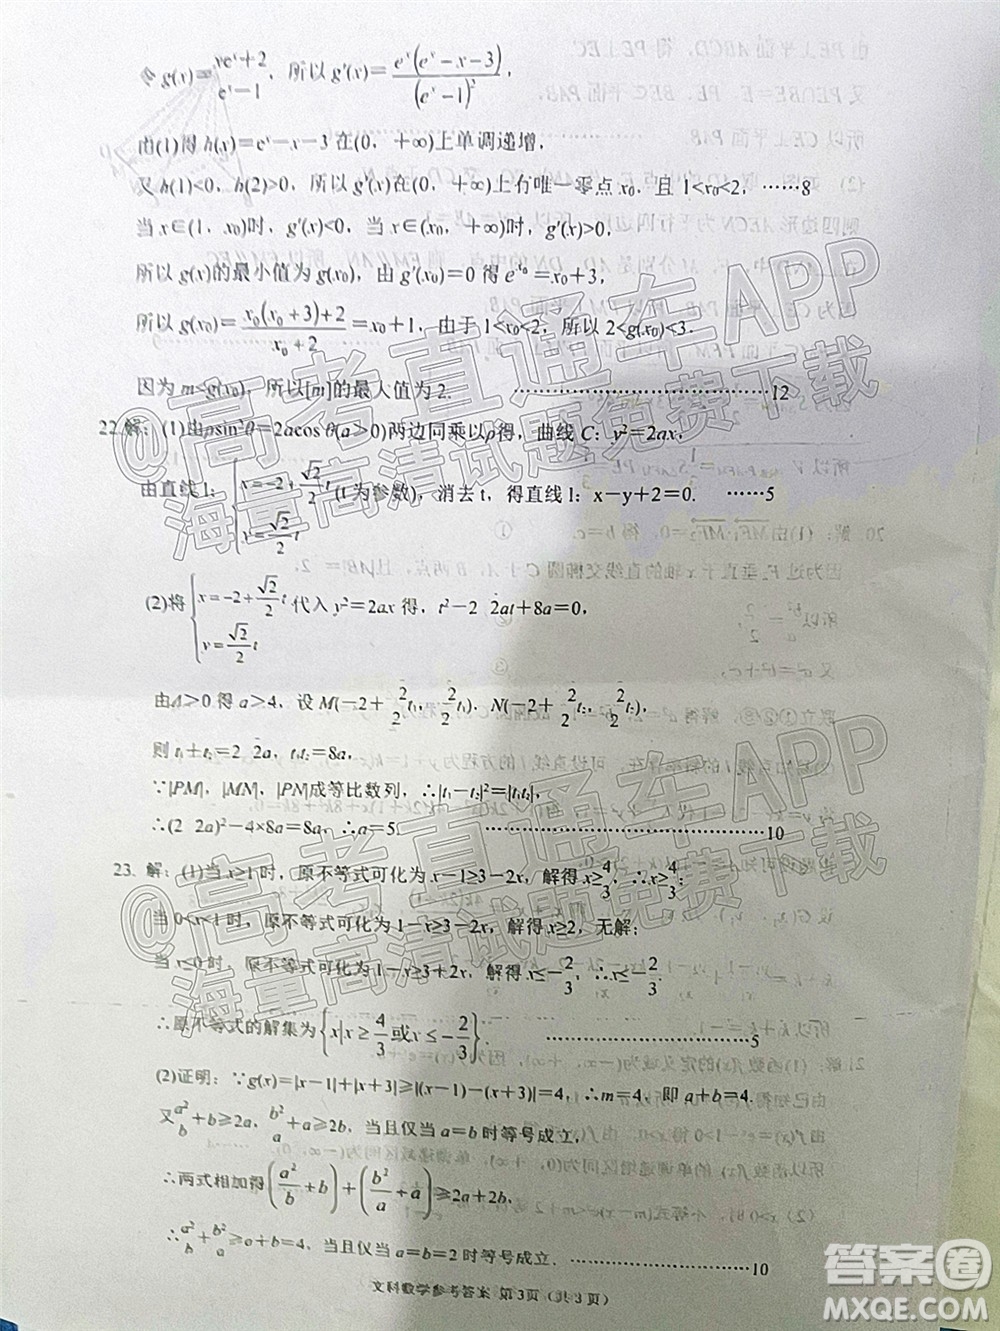 令g(x)=(xeˣ+2)/(eˣ-1), 所以 g'(x)=eˣ(eˣ-x-3)/(eˣ-1)²,
由(1)得 h(x)=eˣ-x-3 在(0, +∞)上单调递增,
又 h(1)<0, h(2)>0, 所以g'(x)在(0, +∞)上有唯一零点 x₀, 且 1<x₀<2, ……8
当 x∈(1, x₀)时, g'(x)<0, 当 x∈(x₀, +∞)时, g'(x)>0,
所以 g(x)的最小值为 g(x₀), 由 g'(x₀)=0 得 e^x₀=x₀+3,
所以 g(x₀)=(x₀(x₀+3)+2)/(x₀+2)=x₀+1, 由于 1<x₀<2, 所以 2<g(x₀)<3.
因为 m<g(x₀), 所以[m]的最大值为 2. ……………………12
22.解: (1)由ρsin²θ=2acosθ(a>0)两边同乘以ρ得, 曲线 C: y²=2ax,
由直线 l: {x=-2+(√2/2)t, y=(√2/2)t (t 为参数), 消去 t, 得直线 l: x-y+2=0. ……5
(2)将{x=-2+(√2/2)t, y=(√2/2)t 代入 y²=2ax 得, t²-2 2at+8a=0,
由Δ>0 得 a>4, 设 M(-2+2/2t₁, 2/2t₁), N(-2+2/2t₂, 2/2t₂),
则 t₁+t₂=2 2a, t₁t₂=8a,
∵|PM|, |MN|, |PN|成等比数列, ∴|t₁-t₂|²=|t₁t₂|,
∴(2 2a)²-4×8a=8a, ∴a=5 ……………………10
23. 解: (1)当 x≥1 时, 原不等式可化为 x-1≥3-2x, 解得 x≥4/3, ∴x≥4/3;
当 0<x<1 时, 原不等式可化为 1-x≥3-2x, 解得 x≥2, 无解;
当 x≤0 时, 原不等式可化为 1-x≥3+2x, 解得 x≤-2/3, ∴x≤-2/3,
∴原不等式的解集为{x|x≥4/3或x≤-2/3}. ……………………5
(2)证明: ∵g(x)=|x-1|+|x+3|≥|(x-1)-(x+3)|=4, ∴m=4, 即 a+b=4.
又a²/b+b≥2a, b²/a+a≥2b, 当且仅当 a=b 时等号成立,
∴两式相加得(a²/b+b)+(b²/a+a)≥2a+2b,
∴a²/b+b²/a≥a+b=4, 当且仅当 a=b=2 时等号成立. ……………………10
文科数学参考答案 第 3页 (共 3 页)
@高考直通车APP
海量高清试题免费下载
@高考直通车APP
海量高清试题免费下载
答案圈
MXQE.COM